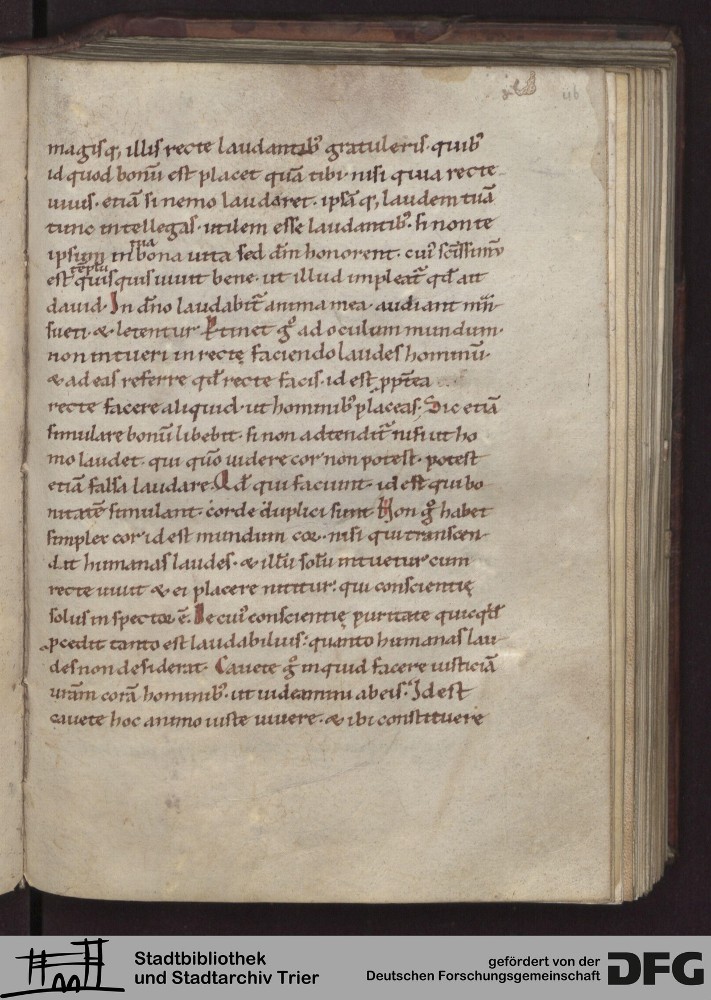 magisq; illis recte laudantib; gratuleris· quib;
id quod bonū est placet quā tibi· nisi quia recte
uiuis· etiā si nemo laudaret· ipsāq; laudem tuā
tunc intellegas utilem esse laudantib;· si non te
ipsum in tua bona uita sed dm̄ honorent· cui; scīssimū
est tēplū quisquis uiuit bene· ut illud impleat̄ qđ ait
dauid· In dn̄o laudabit̄ anima mea· audiant
sueti· & letentur Ptinet g̊ ad oculum mundum·
non intueri in recte faciendo laudes hominū·
& ad eas referre qđ recte facis· id est ppt̄ea
recte facere aliquid· ut hominib; placeas· Sic etiā
simulare bonū libebit· si non adtendit̄ nisi ut ho
mo laudet· qui quō uidere cor non potest· potest
etiā falsa laudare· Qđ qui faciunt· id est qui bo
nitatē simulant· corde duplici sunt Non g̊ habet
simplex cor id est mundum cor· nisi qui transcen-
dit humanas laudes· & illū solū intuetur cum
recte uiuit & ei placere nititur· qui conscientię
solus inspector ē· De cui; conscientię puritate quicqđ
pcedit tanto est laudabilius· quanto humanas lau
des non desiderat· Cauete g̊ inquid facere iusticiā
urām corā hominib;· ut uideamini ab eis· Id est
cauete hoc animo iuste uiuere· & ibi constituere
Stadtbibliothek
und Stadtarchiv Trier
gefördert von der
Deutschen Forschungsgemeinschaft
DFG